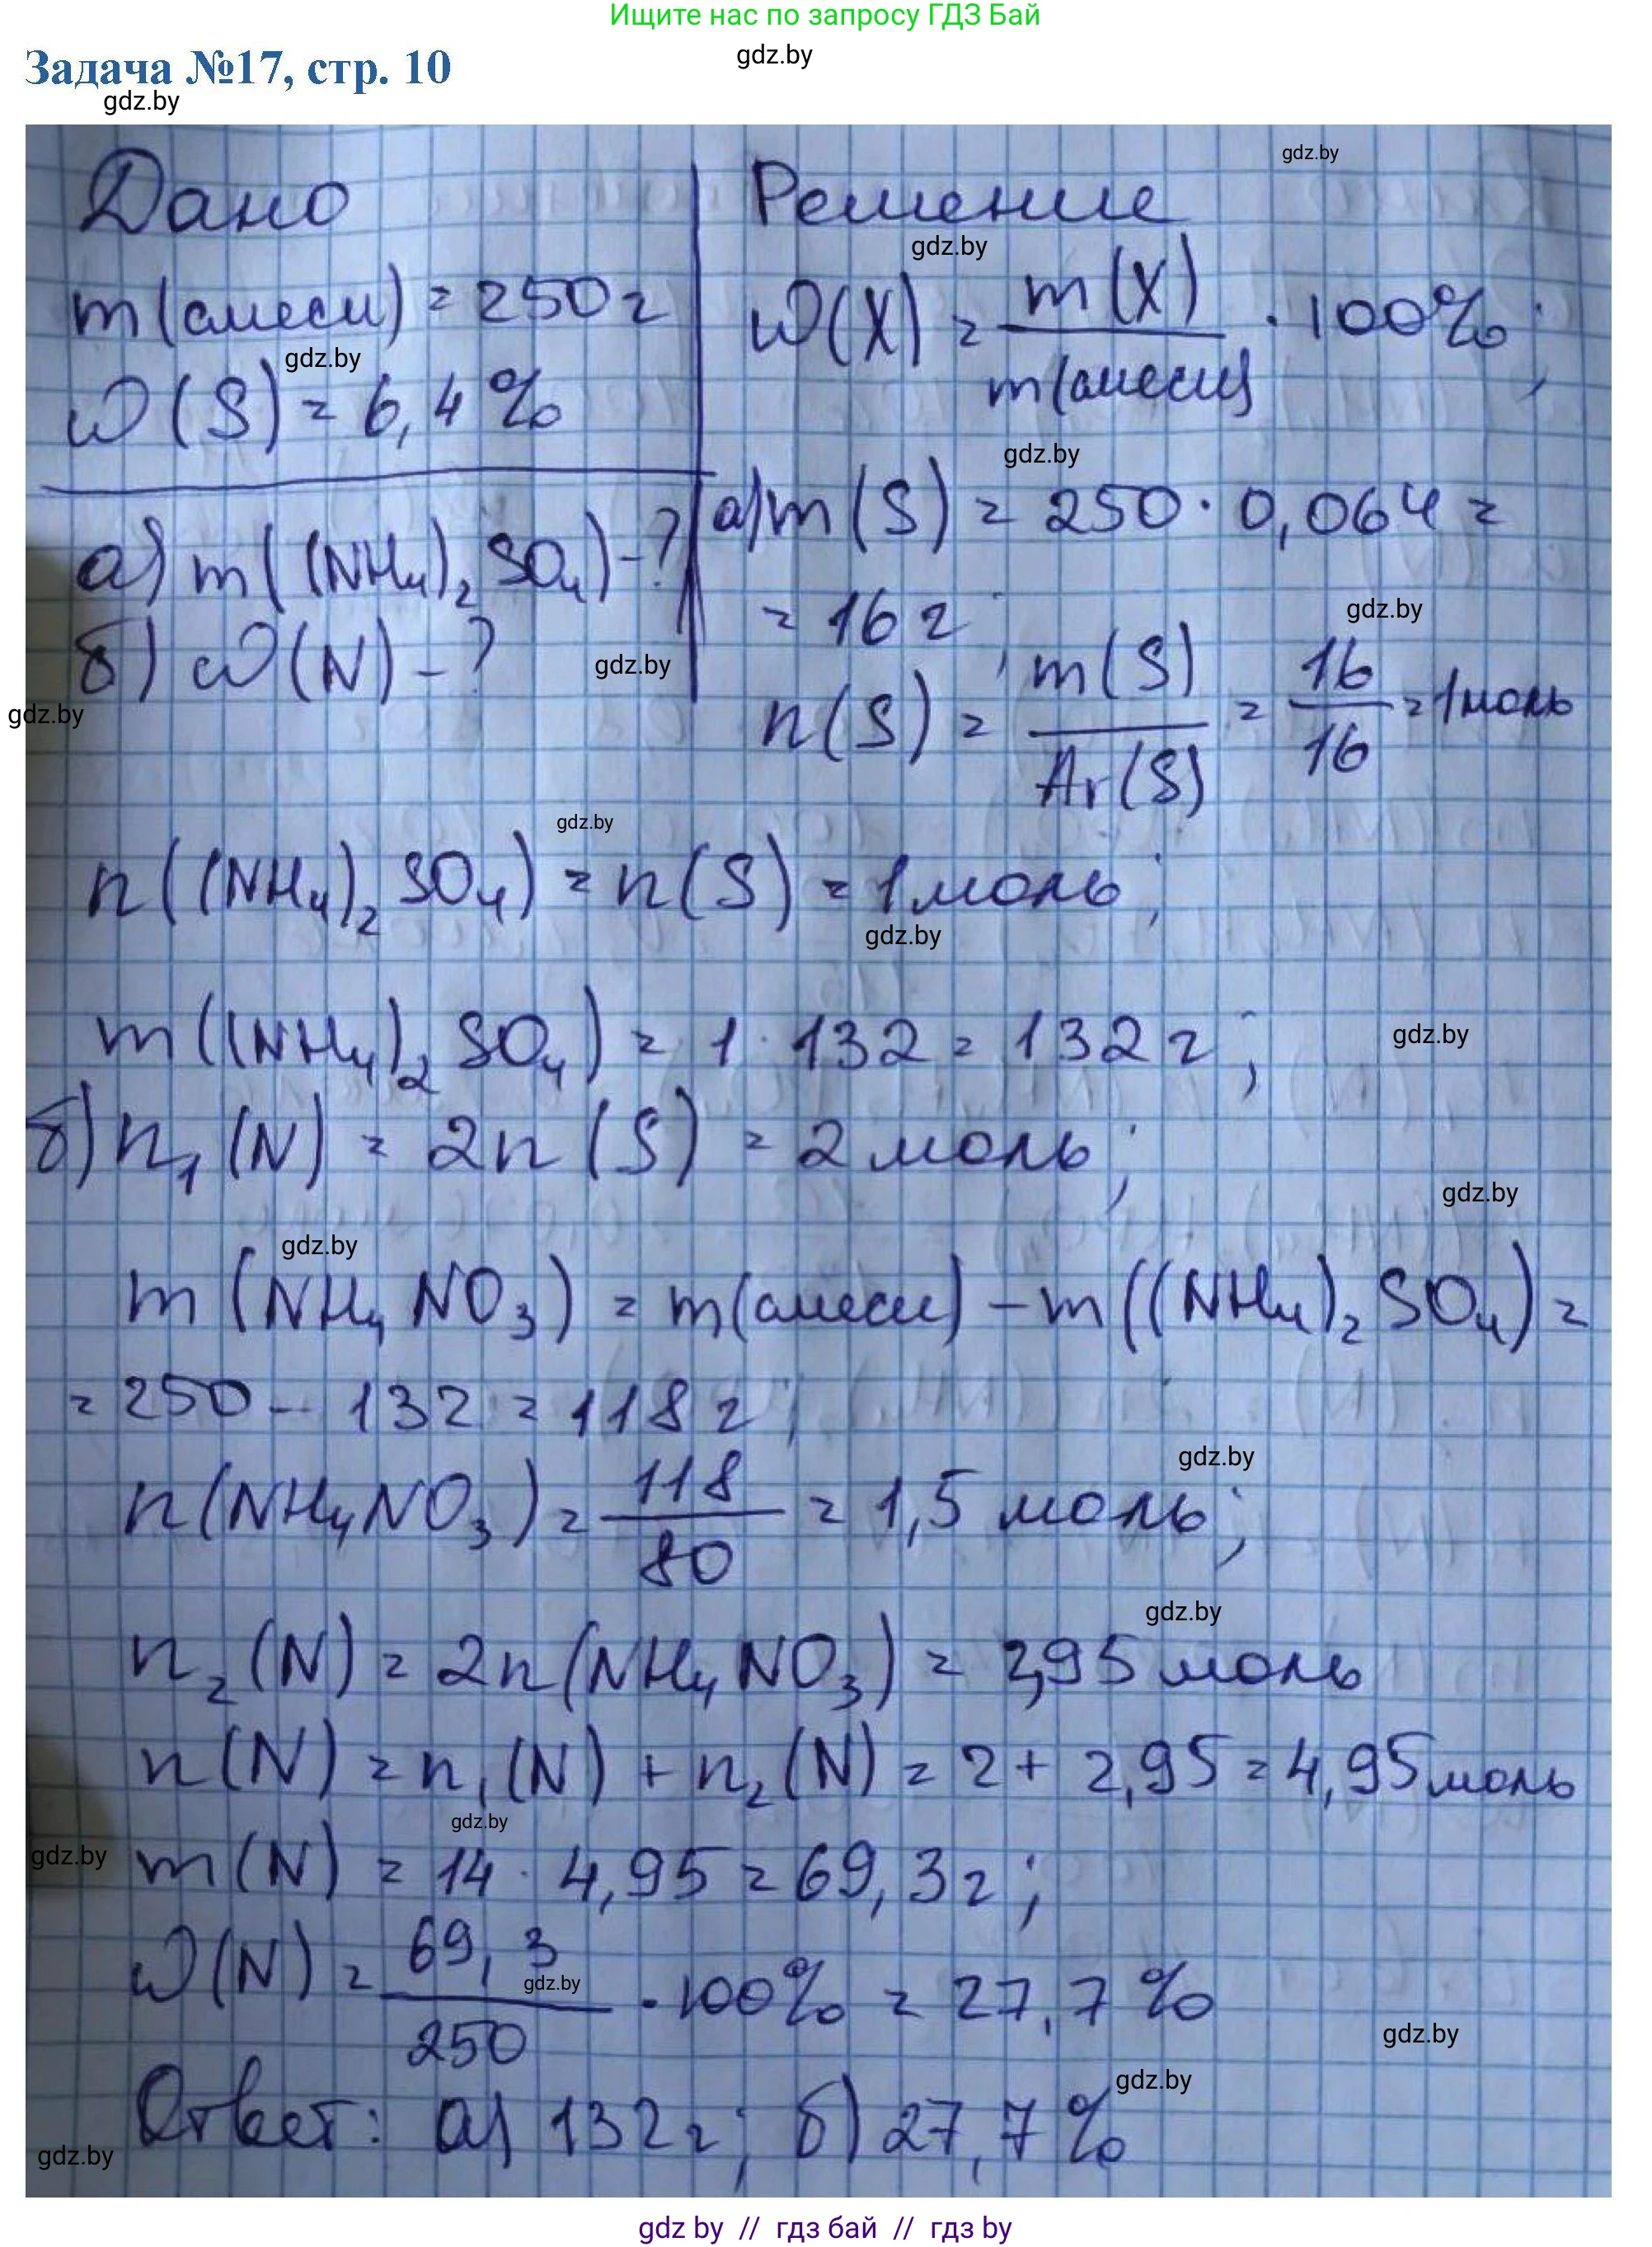 Ищите нас по запросу ГДЗ Бай
gdz.by
Задача №17, стр. 10
gdz.by
gdz.by
Дано
Решение
gdz.by
m(смеси) = 250 г
ω(X) = m(X) / m(смеси) · 100%;
gdz.by
ω(S) = 6,4%
gdz.by
а) m(S) = 250 · 0,064 =
а) m((NH₄)₂SO₄) - ?
= 16 г;
gdz.by
б) ω(N) - ?
gdz.by
gdz.by
n(S) = m(S) / Ar(S) = 16 / 16 = 1 моль
gdz.by
n((NH₄)₂SO₄) = n(S) = 1 моль;
gdz.by
m((NH₄)₂SO₄) = 1 · 132 = 132 г;
gdz.by
б) n₁(N) = 2n(S) = 2 моль;
gdz.by
gdz.by
m(NH₄NO₃) = m(смеси) - m((NH₄)₂SO₄) =
= 250 - 132 = 118 г;
gdz.by
n(NH₄NO₃) = 118 / 80 = 1,5 моль;
gdz.by
n₂(N) = 2n(NH₄NO₃) = 2,95 моль
n(N) = n₁(N) + n₂(N) = 2 + 2,95 = 4,95 моль
gdz.by
gdz.by
m(N) = 14 · 4,95 = 69,3 г;
ω(N) = 69,3 / 250 · 100% = 27,7%
gdz.by
gdz.by
gdz.by
Ответ: а) 132 г; б) 27,7%
gdz.by
gdz by // гдз бай // гдз by